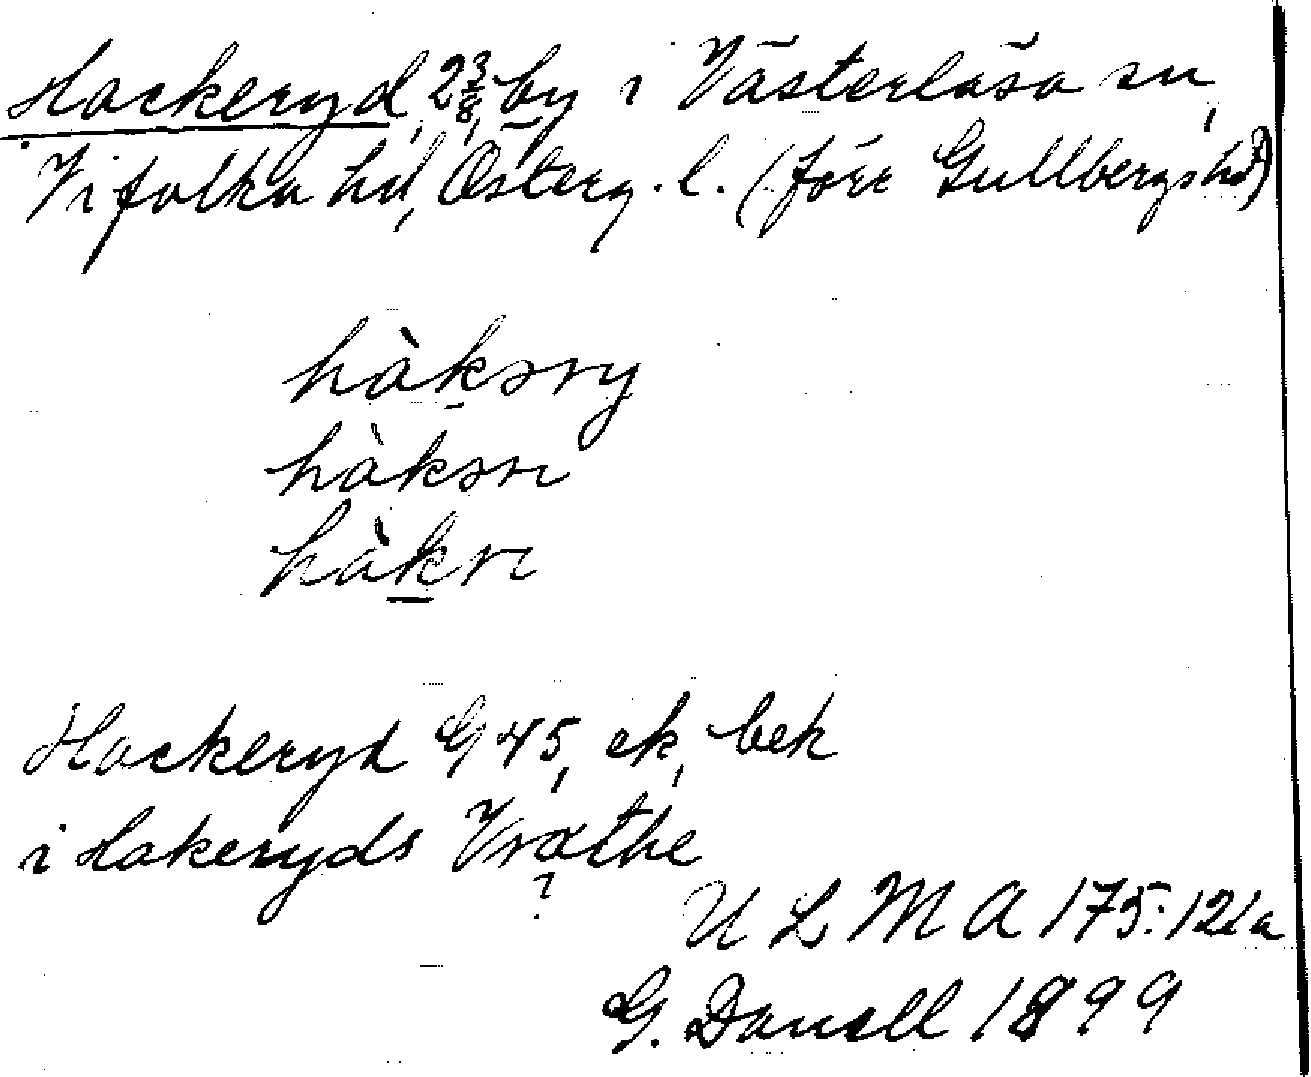 Hackeryd, 2 3/8, by i Västerlösa sn,
Vifolka hd, Österg. l. (förr Gullbergs hd)
hàkəry
hàkərı
hàkrı
Hackeryd G 45, ek, bek
i Hakeryds Vrathe
?
U L M A 175:121a
G. Danell 1899